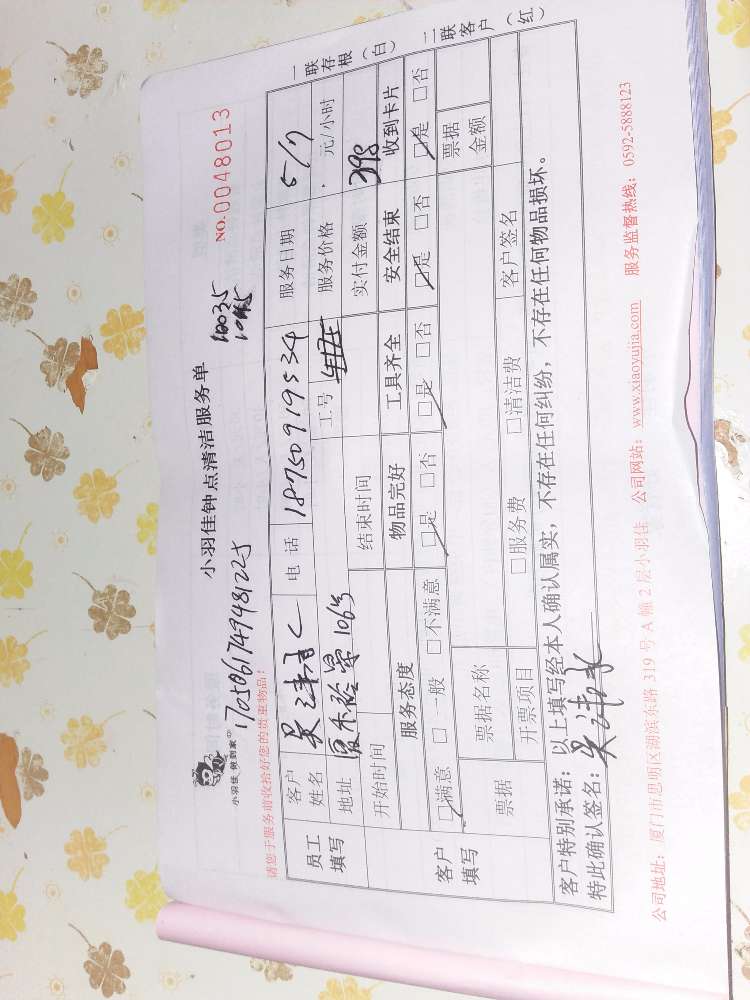 小羽佳 做到家
小羽佳钟点清洁服务单
NO.0048013
1705061749481225
请您于服务前收拾好您的贵重物品：
员工填写
客户姓名
电 话 18750919534
服务日期 5/7
地址 106号
工号
服务价格 元/小时
开始时间
结束时间
实付金额 398
客户填写
服务态度 物品完好 工具齐全 安全结束 收到卡片
□满意 □一般 □不满意 □是 □否 □是 □否 □是 □否 □是 □否
票据 票据名称 票据金额
开票项目 □服务费 □清洁费 客户签名
客户特别承诺：以上填写经本人确认属实，不存在任何纠纷，不存在任何物品损坏。
特此确认签名：
公司地址：厦门市思明区湖滨东路 319 号 A 幢 2 层小羽佳 公司网站：www.xiaoyujia.com 服务监督热线：0592-5888123
一联存根（白） 二联客户（红）